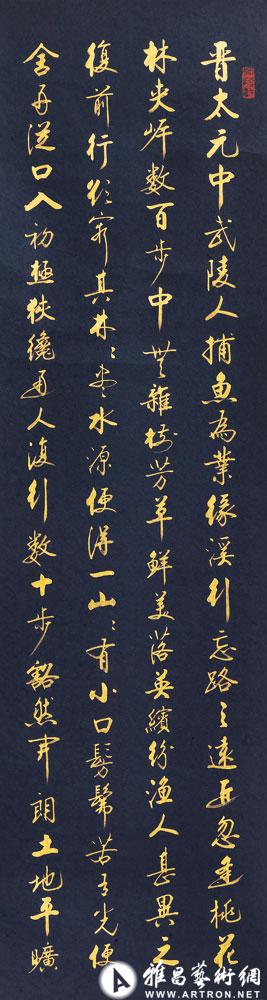 晋太元中武陵人捕鱼为业缘溪行忘路之远近忽逢桃花
林夹岸数百步中无杂树芳草鲜美落英缤纷渔人甚异之
復前行欲窮其林〻尽水源便得一山〻有小口髣髴若有光便
舍舟從口入初極狹纔通人復行数十步豁然開朗土地平曠
雅昌藝術網
WWW.ARTRON.NET